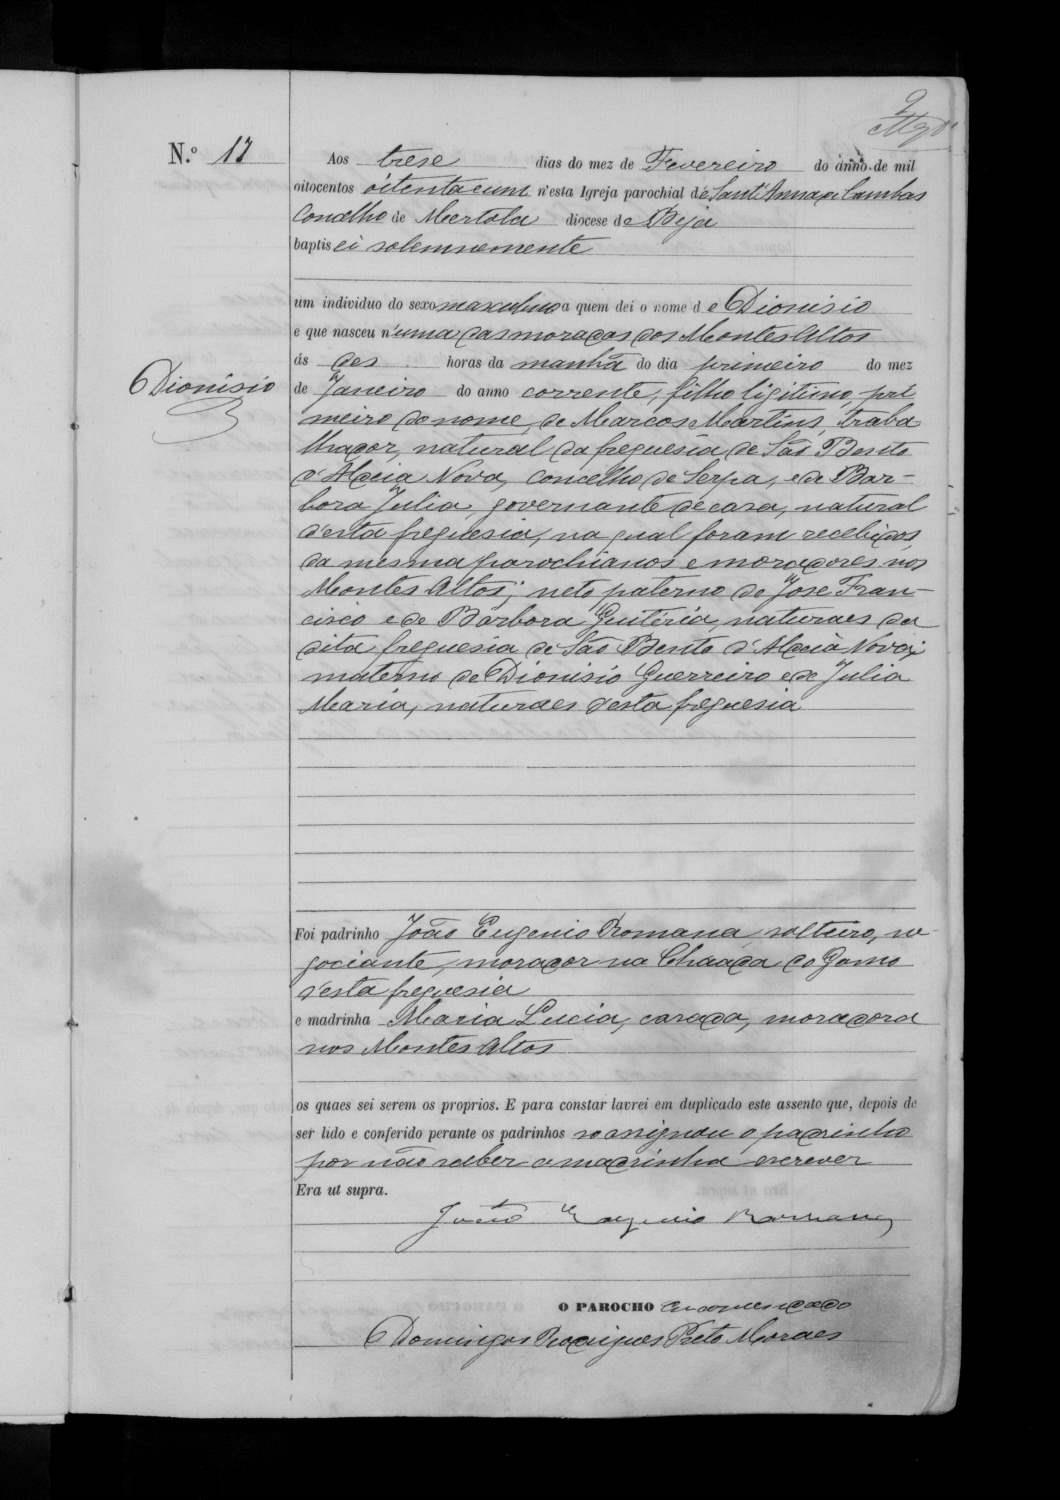 9
N.º 17
Aos trese dias do mez de Fevereiro do anno de mil
oitocentos oitenta e um n'esta Igreja parochial de Sant'Anna de Cambas
Concelho de Mertola diocese de Beja
baptisei solemnemente
um individuo do sexo masculino a quem dei o nome de Dionisio
e que nasceu n'uma das moradas dos Montes Altos
ás des horas da manhã do dia primeiro do mez
Dionisio
de Janeiro do anno corrente, filho ligitimo, pri
meiro do nome, de Marcos Martins, traba
lhador, natural da freguesia de São Bento
d'Aldeia Nova, concelho de Serpa, e de Bar-
bora Julia governante de casa, natural
d'esta freguesia, na qual foram recebidos,
da mesma parochianos e moradores nos
Montes Altos; neto paterno de Jose Fran-
cisco e de Bárbora Quitéria, naturaes da
dita freguesia de São Bento d'Aldeia Nova;
materno de Dionisio Guerreiro e de Julia
Maria, naturaes desta freguesia
Foi padrinho João Eugenio Romana, solteiro, ne
gociante, morador na Chaada do Gamo
d'esta freguesia
e madrinha Maria Lucia, casada, moradora
nos Montes Altos
os quaes sei serem os proprios. E para constar lavrei em duplicado este assento que, depois de
ser lido e conferido perante os padrinhos so assignou o padrinho
por não saber a madrinha escrever
Era ut supra.
João Eugenio Romana
O PAROCHO encomendado
Domingos Rodrigues Preto Moraes